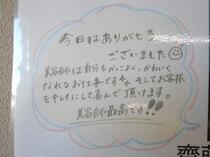 今日はありがとう
ございました
美容師は自分もかっこよく、かわいく
なれるお仕事ですよ そしてお客様
をキレイにして喜んで頂けます。
美容師最高です!!